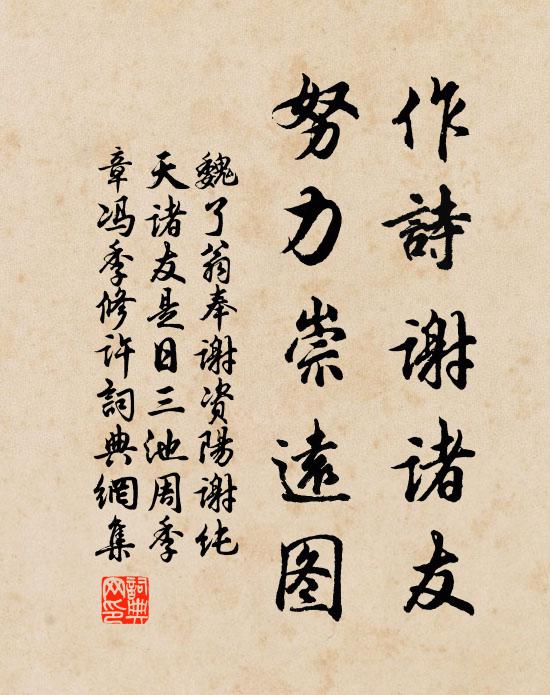 作詩谢诸友
努力崇遠图
魏了翁奉谢资陽谢纯
天诸友是日三池周季
章冯季修许詞典網集
詞典网印